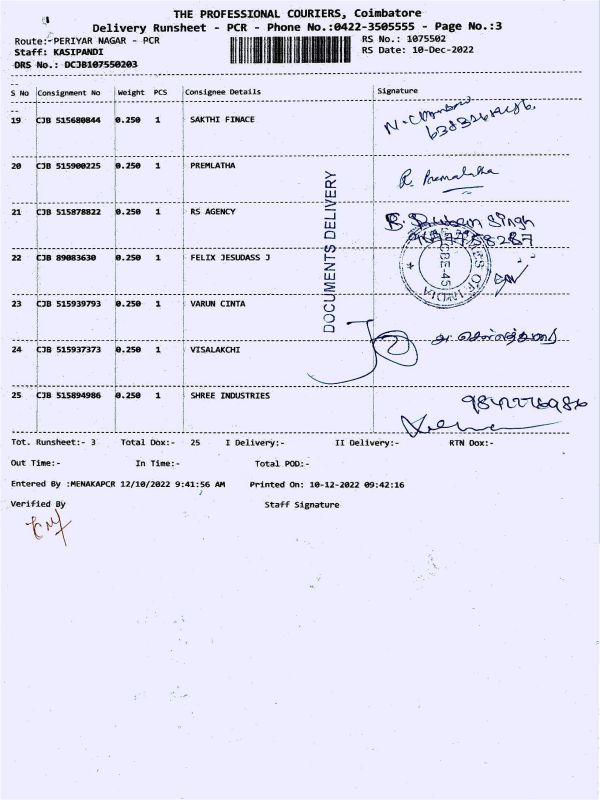 THE PROFESSIONAL COURIERS, Coimbatore
Delivery Runsheet - PCR - Phone No.:0422-3505555 - Page No.:3
Route:-PERIYAR NAGAR - PCR
RS No.: 1075502
Staff: KASIPANDI
RS Date: 10-Dec-2022
DRS No.: DCJB107550203
S No Consignment No Weight PCS Consignee Details Signature
19 CJB 515680844 0.250 1 SAKTHI FINACE
20 CJB 515900225 0.250 1 PREMLATHA
R. Premalatha
21 CJB 515878822 0.250 1 RS AGENCY
Singh
22 CJB 89083630 0.250 1 FELIX JESUDASS J
CBE-45
OF INDIA
DOCUMENTS DELIVERY
23 CJB 515939793 0.250 1 VARUN CINTA
24 CJB 515937373 0.250 1 VISALAKCHI
25 CJB 515894986 0.250 1 SHREE INDUSTRIES
Tot. Runsheet:- 3 Total Dox:- 25 I Delivery:- II Delivery:- RTN Dox:-
Out Time:- In Time:- Total POD:-
Entered By :MENAKAPCR 12/10/2022 9:41:56 AM Printed On: 10-12-2022 09:42:16
Verified By Staff Signature